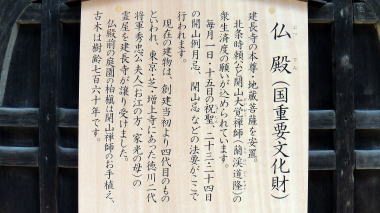 仏殿(国重要文化財)
建長寺の本尊・地蔵菩薩を安置。
北条時頼公と開山大覚禅師(蘭渓道隆)の
衆生済度の願いが込められています。
毎月一日・十五日の祝聖、二十三・二十四日
の開山例月忌、開山忌などの法要がここで
行われます。
現在の建物は、創建当初より四代目のもの
といわれ、東京・芝・増上寺にあった徳川二代
将軍秀忠公夫人(お江の方、家光の母)の
霊屋を建長寺が譲り受けました。
仏殿前の庭園の柏槇は開山禅師のお手植え、
古木は樹齢七百六十年です。